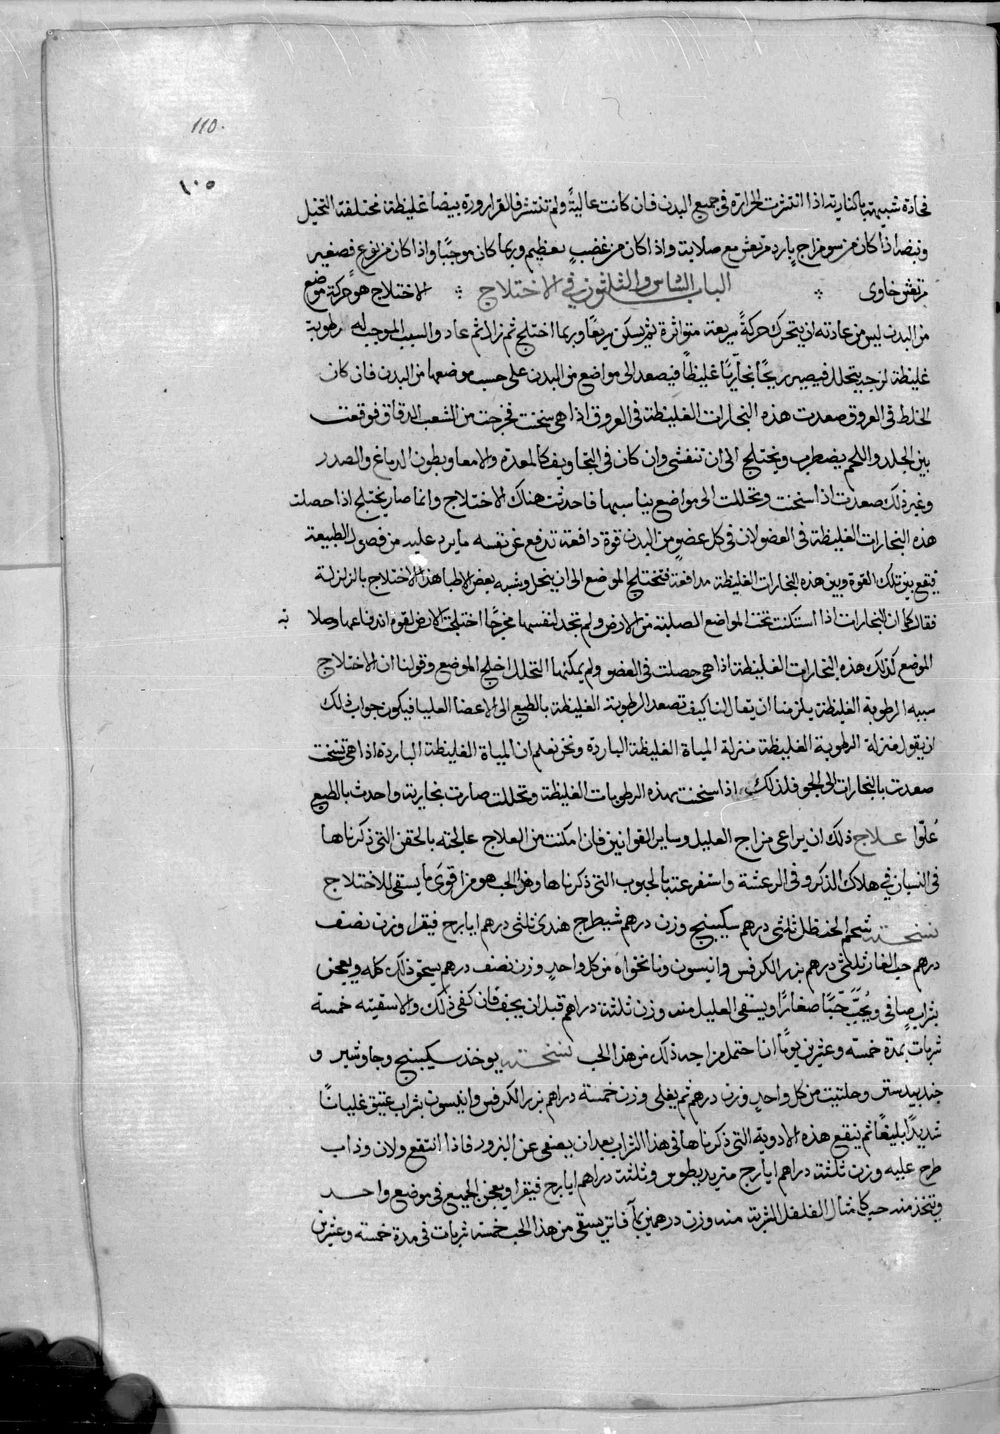 110.
١٠٥
فحادة شبيهة بالنارية اذا انتشرت الحرارة في جميع البدن فان كانت عالية ولم تنتشر فالقارورة بيضا غليظة مختلفة التخيل
ونبضه اذا كان من سو مزاج بارد مرتعش مع صلابة واذا كان من غضب عظيم وربما كان موجبا واذا كان من فزع فصغير
مرتعش خاوى الباب السادس والثلثون في الاختلاج الاختلاج هو حركة موضع
من البدن ليس من عادته ان يتحرك حركةً سريعة متواترة ثم يسكن سريعًا وربما اختلج ثم زال ثم عاد والسبب الموجب له رطوبة
غليظة لزجة يتحلل فيصير ريحًا بخاريًا غليظًا فيصعد الى مواضع من البدن على حسب موضعها من البدن فان كان
الخلط في العروق صعدت هذه البخارات الغليظة في العروق اذا هي سخنت فخرجت من الشعب الدقاق فوقعت
بين الجلد واللحم يضطرب ويختلج الى ان تنفشى وان كان في التجاويف كالمعدة والامعا وبطون الدماغ والصدر
وغير ذلك صعدت اذا سخنت وتحللت الى مواضع يناسبها فاحدثت هناك الاختلاج وانما صار يختلج اذا حصلت
هذه البخارات الغليظة في العضو لان في كل عضو من البدن قوة دافعة تدفع عن نفسه ما يرد عليه من فضول الطبيعة
فيقع بين تلك القوة وبين هذه البخارات الغليظة مدافعة فتختلج الموضع الى ان ينحل وشبه بعض الاطبا هذا الاختلاج بالزلزلة
فقال كما ان البخارات اذا استكنت تحت المواضع الصلبة من الارض ولم تجد لنفسها مخرجًا اختلجت الارض لقوم اندفاعها وصلابة
الموضع كذلك هذه البخارات الغليظة اذا هي حصلت في العضو ولم يمكنها التحلل اختلج الموضع وقولنا ان الاختلاج
سببه الرطوبة الغليظة يلزمنا ان يقال لنا كيف تصعد الرطوبة الغليظة بالطبع الى الاعضا العليا فيكون جواب ذلك
ان يقول منزلة الرطوبة الغليظة منزلة المياة الغليظة الباردة ونحن نعلم ان المياة الغليظة الباردة اذا هي سخنت
صعدت بالبخارات الى الجو فلذلك اذا سخنت هذه الرطوبات الغليظة وتحللت صارت بخارية واحدث بالطبع
عُلوّا علاج ذلك ان يراعى مزاج العليل وساير القوانين فان امكنت من العلاج عالجته بالحقن التي ذكرناها
في النسيان في هلاك الذكر وفي الرعشة واستفرغته بالحبوب التي ذكرناها وهذا الحب هو من اقوى ما يسقى للاختلاج
نسخته شحم الحنظل ثلثى درهم سكبينج وزن درهم شيطرج هندى ثلثى درهم ايارج فيقرا وزن نصف
درهم حب الغار ثلثى درهم بزر الكرفس وانيسون ونانخواه من كل واحد وزن نصف درهم يسحق ذلك كله ويعجن
بشراب صافي ويُحبّب حبًا صغارًا ويسقى العليل منه وزن ثلثة دراهم قبل ان يجف فان كفى ذلك والا سقيته خمسة
شربات بمدة خمسة وعشرين يومًا ان احتمل مزاجه ذلك من هذا الحب نسخته يوخذ سكبينج وجاوشير و
جندبيدستر وحلتيت من كل واحد وزن درهم ثم يغلى وزن خمسة دراهم بزر الكرفس وانيسون بشراب عتيق غليانًا
شديدًا بليغًا ثم ينقع هذه الادوية التي ذكرناها في هذا الشراب بعد ان يصفى عن البزور فاذا انتقع ولان وذاب
طرح عليه وزن ثلثة دراهم ايارج مثريديطوس وثلثة دراهم ايارج فيقرا ويعجن الجميع في موضع واحد
ويتخذ منه حب كامثال الفلفل الشربة منه وزن درهمين بمآ فاتر يسقى من هذا الحب خمسة شربات في مدة خمسة وعشرين